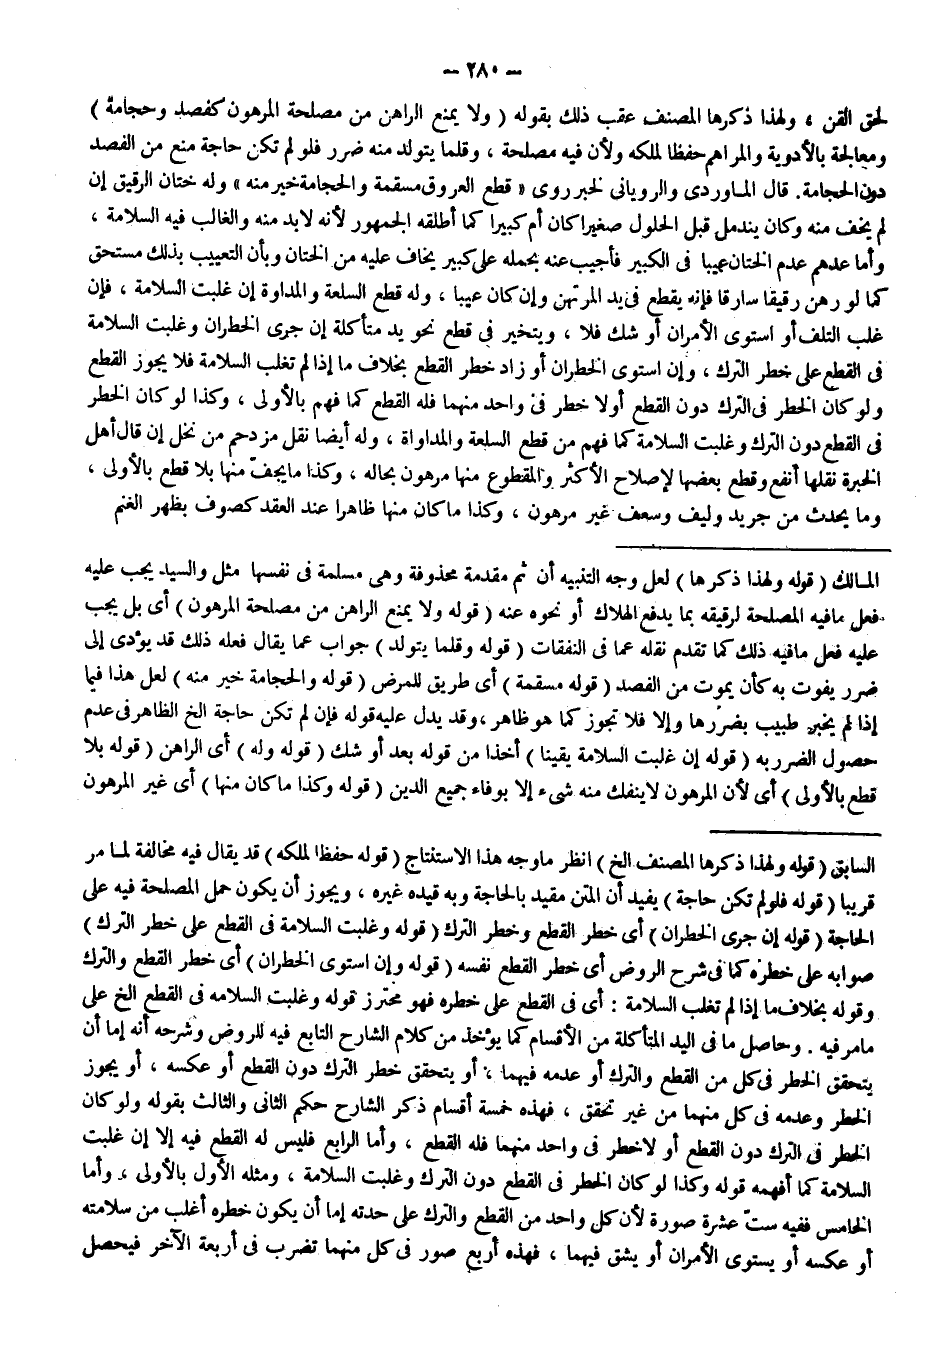 – ٢٨٠ –
لحق القن ، ولهذا ذكرها المصنف عقب ذلك بقوله ( ولا يمنع الراهن من مصلحة المرهون كفصد وحجامة )
ومعالجة بالأدوية والمراهم حفظا لملكه ولأن فيه مصلحة ، وقلما يتولد منه ضرر فلو لم تكن حاجة منع من الفصد
دون الحجامة . قال الماوردى والرويانى لخبر روى « قطع العروق مسقمة والحجامة خير منه » وله ختان الرقيق إن
لم يخف منه وكان يندمل قبل الحلول صغيرا كان أم كبيرا كما أطلقه الجمهور لأنه لابد منه والغالب فيه السلامة ،
وأما عدهم عدم الختان عيبا فى الكبير فأجيب عنه بحمله على كبير يخاف عليه من الختان وبأن التعييب بذلك مستحق
كما لو رهن رقيقا سارقا فإنه يقطع فى يد المرتهن وإن كان عيبا ، وله قطع السلعة والمداوة إن غلبت السلامة ، فإن
غلب التلف أو استوى الأمران أو شك فلا ، ويتخير فى قطع نحو يد متأكلة إن جرى الخطران وغلبت السلامة
فى القطع على خطر الترك ، وإن استوى الخطران أو زاد خطر القطع بخلاف ما إذا لم تغلب السلامة فلا يجوز القطع
ولو كان الخطر فى الترك دون القطع أولا خطر فى واحد منهما فله القطع كما فهم بالأولى ، وكذا لو كان الخطر
فى القطع دون الترك وغلبت السلامة كما فهم من قطع السلعة والمداواة ، وله أيضا نقل مزدحم من نخل إن قال أهل
الخبرة نقلها أنفع وقطع بعضها لإصلاح الأكثر والمقطوع منها مرهون بحاله ، وكذا مايجفّ منها بلا قطع بالأولى ،
وما يحدث من جريد وليف وسعف غير مرهون ، وكذا ماكان منها ظاهرا عند العقد كصوف بظهر الغنم
المالك ( قوله ولهذا ذكرها ) لعل وجه التنبيه أن ثم مقدمة محذوفة وهى مسلمة فى نفسها مثل والسيد يجب عليه
فعل مافيه المصلحة لرقيقه بما يدفع الهلاك أو نحوه عنه ( قوله ولا يمنع الراهن من مصلحة المرهون ) أى بل يجب
عليه فعل مافيه ذلك كما تقدم نقله عما فى النفقات ( قوله وقلما يتولد ) جواب عما يقال فعله ذلك قد يؤدى إلى
ضرر يفوت به كأن يموت من الفصد ( قوله مسقمة ) أى طريق للمرض ( قوله والحجامة خير منه ) لعل هذا فيما
إذا لم يخبر طبيب بضررها وإلا فلا تجوز كما هو ظاهر ، وقد يدل عليه قوله فإن لم تكن حاجة الخ الظاهر فى عدم
حصول الضرر به ( قوله إن غلبت السلامة يقينا ) أخذا من قوله بعد أو شك ( قوله وله ) أى الراهن ( قوله بلا
قطع بالأولى ) أى لأن المرهون لاينفك منه شىء إلا بوفاء جميع الدين ( قوله وكذا ماكان منها ) أى غير المرهون
السابق ( قوله ولهذا ذكرها المصنف الخ ) انظر ماوجه هذا الاستفتاج ( قوله حفظا لملكه ) قد يقال فيه مخالفة لما مر
قريبا ( قوله فلو لم تكن حاجة ) يفيد أن المتن مقيد بالحاجة وبه قيده غيره ، ويجوز أن يكون حمل المصلحة فيه على
الحاجة ( قوله إن جرى الخطران ) أى خطر القطع وخطر الترك ( قوله وغلبت السلامة فى القطع على خطر الترك )
صوابه على خطره كما فى شرح الروض أى خطر القطع نفسه ( قوله وإن استوى الخطران ) أى خطر القطع والترك
وقوله بخلاف ما إذا لم تغلب السلامة : أى فى القطع على خطره فهو محترز قوله وغلبت السلامه فى القطع الخ على
مامر فيه . وحاصل ما فى اليد المتأكلة من الأقسام كما يؤخذ من كلام الشارح التابع فيه للروض وشرحه أنه إما أن
يتحقق الخطر فى كل من القطع والترك أو عدمه فيهما ، أو يتحقق خطر الترك دون القطع أو عكسه ، أو يجوز
الخطر وعدمه فى كل منهما من غير تحقق ، فهذه خمسة أقسام ذكر الشارح حكم الثانى والثالث بقوله ولو كان
الخطر فى الترك دون القطع أو لاخطر فى واحد منهما فله القطع ، وأما الرابع فليس له القطع فيه إلا إن غلبت
السلامة كما أفهمه قوله وكذا لو كان الخطر فى القطع دون الترك وغلبت السلامة ، ومثله الأول بالأولى ، وأما
الخامس ففيه ستّ عشرة صورة لأن كل واحد من القطع والترك على حدته إما أن يكون خطره أغلب من سلامته
أو عكسه أو يستوى الأمران أو يشق فيهما ، فهذه أربع صور فى كل منهما تضرب فى أربعة الآخر فيحصل